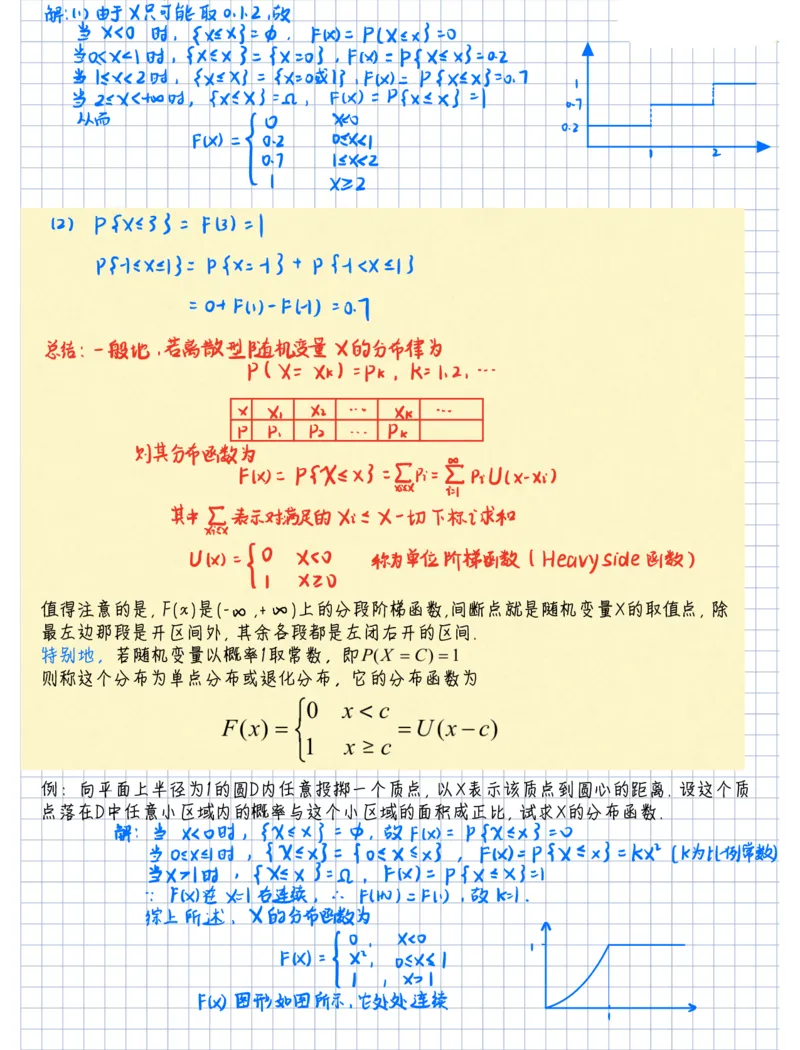 解:(1) 由于X只可能取0.1.2,故
当 X<0 时, {X≤x}=φ, F(x)=P{X≤x}=0
当0<X<1时, {X≤x}={X=0}, F(x)=P{X≤x}=0.2
当1≤X<2时, {X≤X}={X=0或1}, F(x)=P{X≤x}=0.7
当 2≤X<+∞时, {X≤X}=Ω, F(x)=P{X≤x}=1
从而
F(x)= { 0 X<0
0.2 0≤X<1
0.7 1≤X<2
1 X≥2
1
0.7
0.2
1 2
(2) P{X≤3}=F(3)=1
P{-1≤X≤1}=P{X=-1}+P{-1<X≤1}
=0+F(1)-F(-1)=0.7
总结:一般地,若离散型随机变量X的分布律为
P(X=Xk)=Pk, K=1,2,…
X X1 X2 … Xk …
P P1 P2 … Pk
则其分布函数为
F(x)=P{X≤x}=∑Pi=∑PiU(x-xi)
xi≤x i=1 ∞
其中 ∑ 表示对满足的 Xi≤X一切下标i求和
xi≤x
U(x)= { 0 X<0 称为单位阶梯函数(Heavyside函数)
1 X≥0
值得注意的是,F(x)是(-∞,+∞)上的分段阶梯函数,间断点就是随机变量X的取值点,除
最左边那段是开区间外,其余各段都是左闭右开的区间.
特别地,若随机变量以概率1取常数,即P(X=C)=1
则称这个分布为单点分布或退化分布,它的分布函数为
F(x)= { 0 x<c =U(x-c)
1 x≥c
例:向平面上半径为1的圆D内任意投掷一个质点,以X表示该质点到圆心的距离.设这个质
点落在D中任意小区域内的概率与这个小区域的面积成正比,试求X的分布函数.
解:当 X<0时,{X≤x}=φ,故F(x)=P{X≤x}=0
当0≤X≤1时,{X≤x}={0≤X≤x},F(x)=P{X≤x}=kx² (k为比例常数)
当X>1时,{X≤x}=Ω,F(x)=P{X≤X}=1
∵ F(x)在x=1右连续,∴ F(1+0)=F(1),故k=1.
综上所述,X的分布函数为
F(x)= { 0, X<0
x², 0≤X≤1
1, X>1
F(x)图形如图所示,它处处连续
1
1